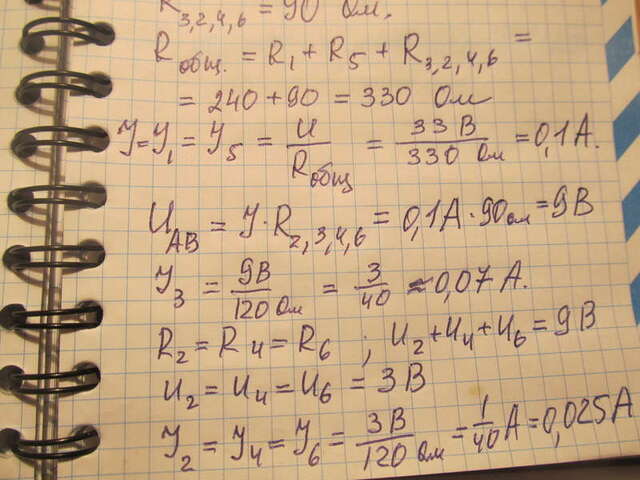 R3,2,4,6 = 90 Ом.
Rобщ. = R1 + R5 + R3,2,4,6 =
= 240 + 90 = 330 Ом
У = У1 = У5 = U/Rобщ = 33 В/330 Ом = 0,1 А.
UАВ = У · R2,3,4,6 = 0,1А · 90 Ом = 9В
У3 = 9В/120 Ом = 3/40 ≈ 0,07 А.
R2 = R4 = R6 ; U2 + U4 + U6 = 9 В
U2 = U4 = U6 = 3 В
У2 = У4 = У6 = 3 В/120 Ом = 1/40 А = 0,025 А